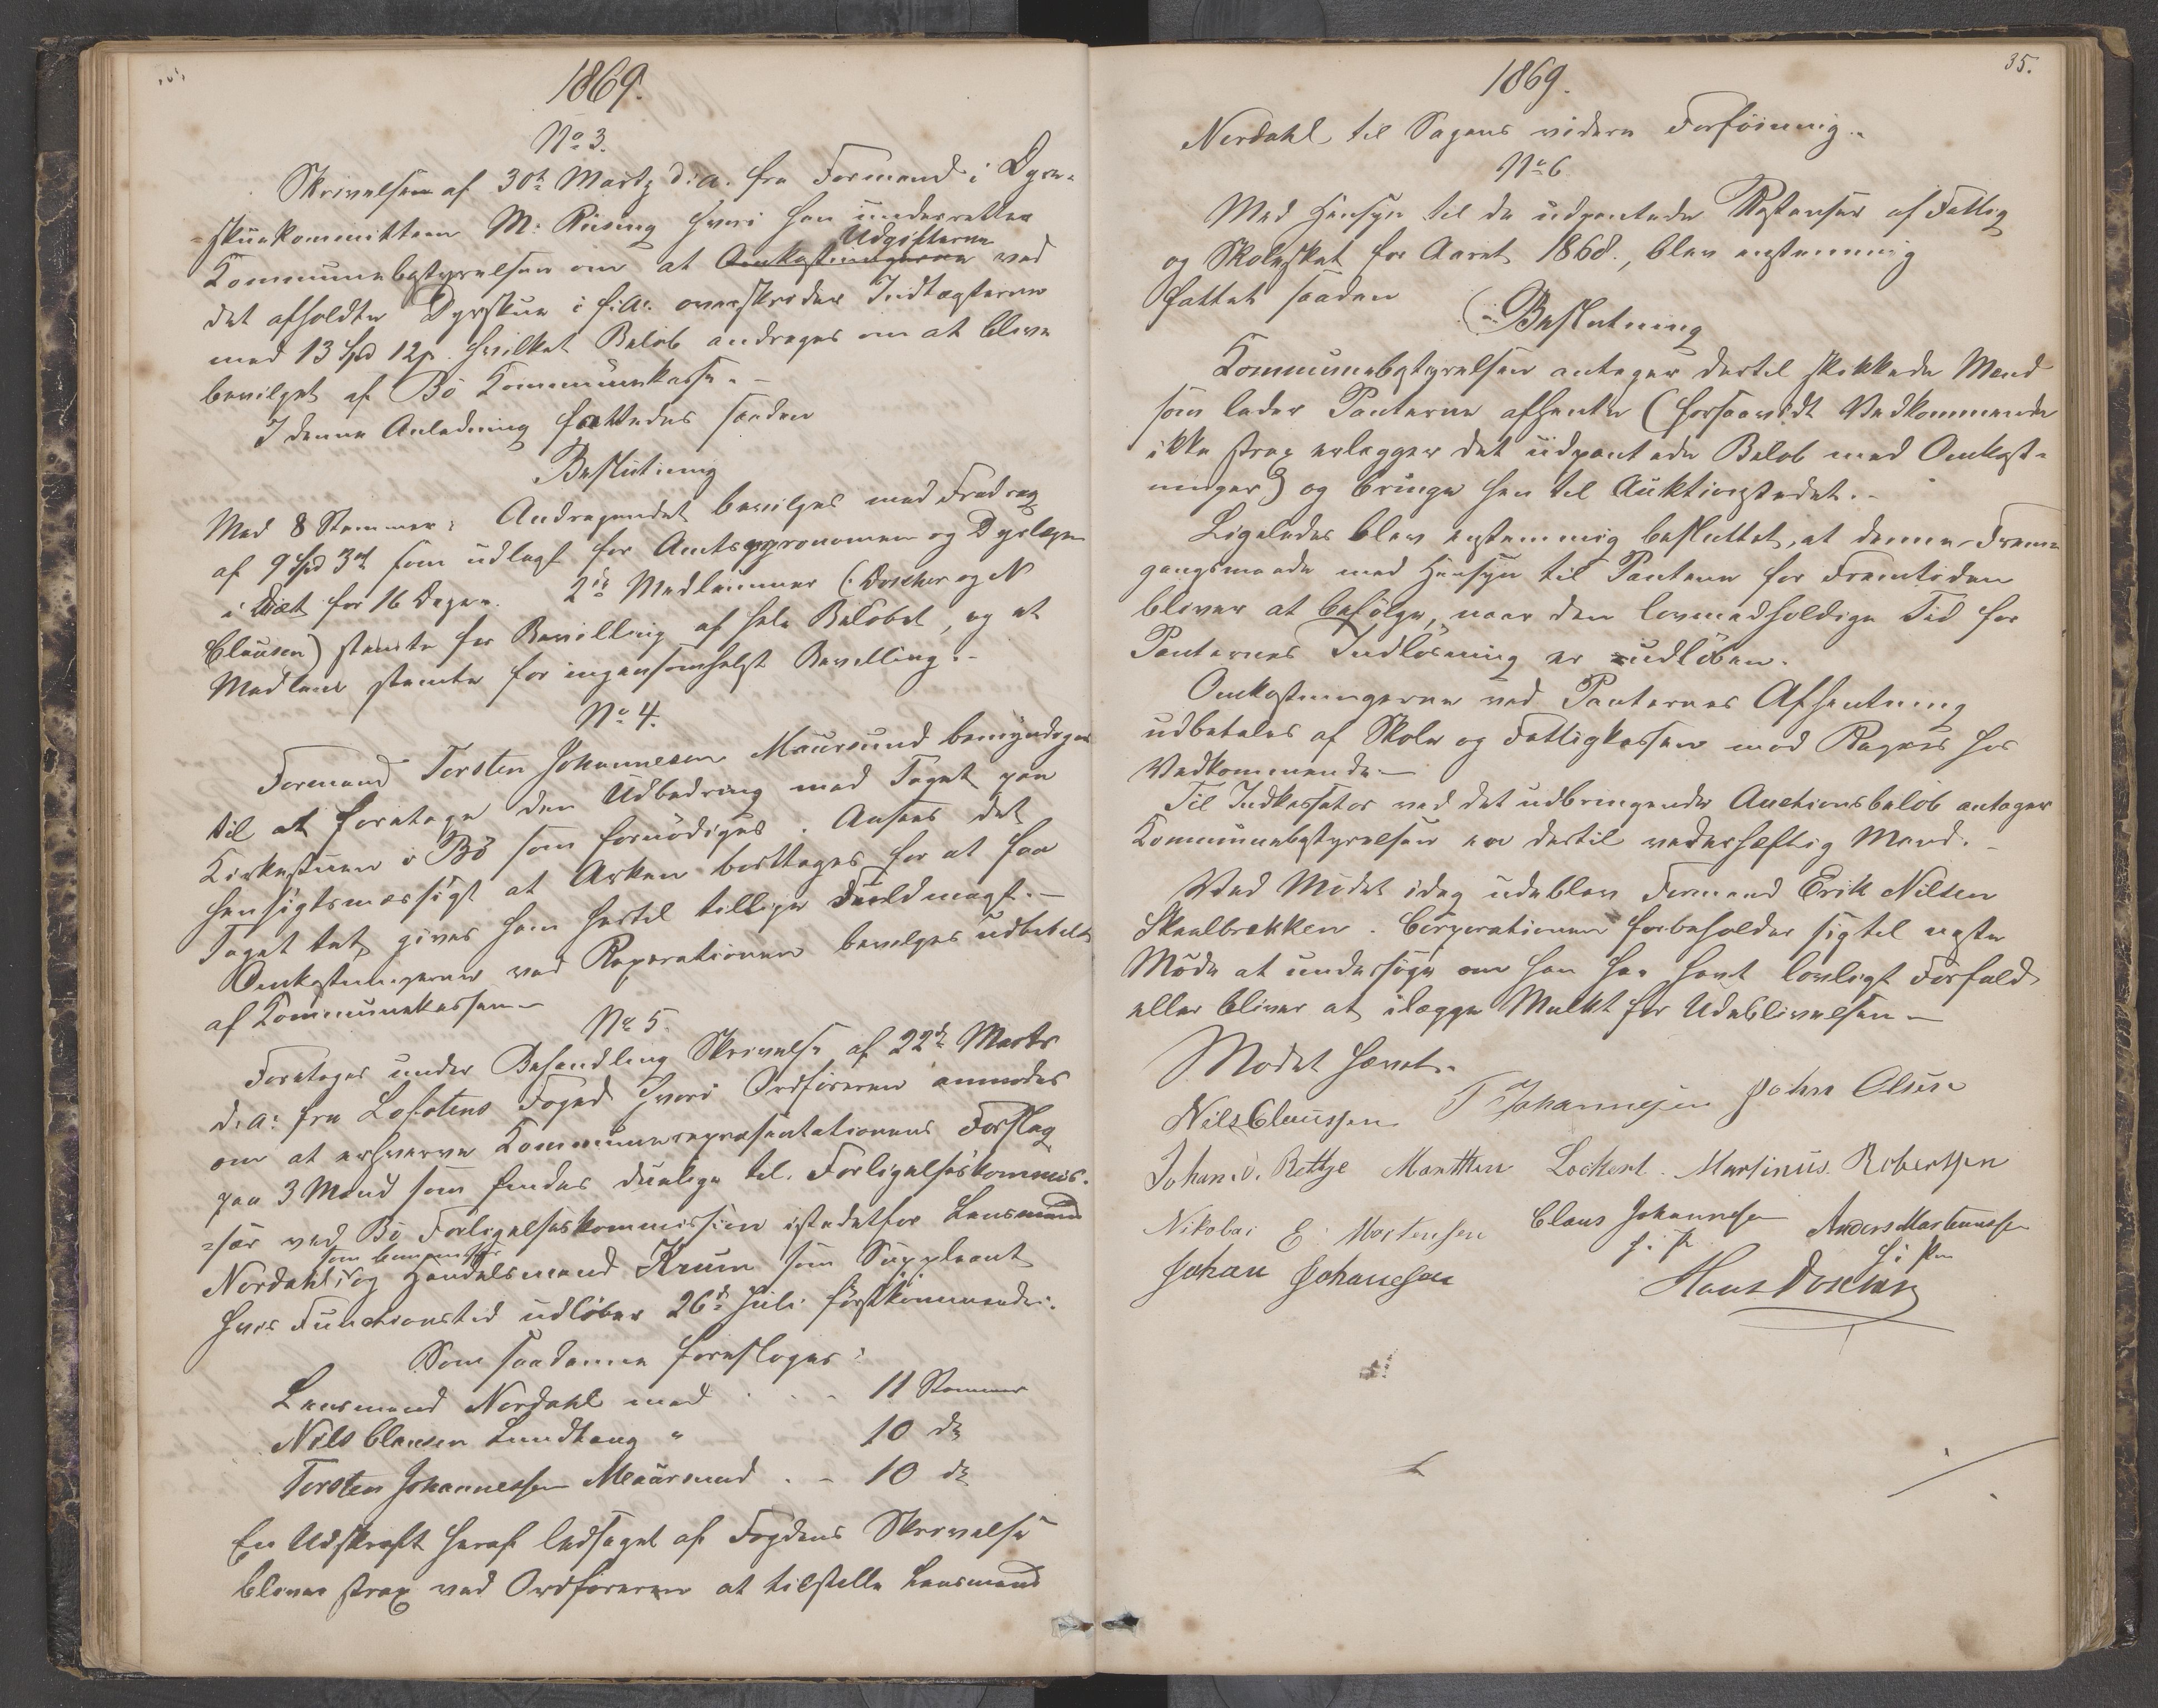 1869.
No 3.
Skrivelsen af 30te Martz d: a. fra Formand i Dyre-
=skuekommitteen M: Rüsing hvori han underretter
Udgifterne
Kommunebestyrelsen om at Omkostningerne ved
det afholdte Dyrskue i f: a: overskrider Indtægterne
med 13 Spd 12 s. hvilket Beløb andrages om at blive
bevilget af Bö Kommunekasse. –
I denne Anledning fattedes saaden
Beslutning
Med 8 Stemmer: Andragendet bevilges med Fradrag
af 9 Spd 3 som udlagt for Amtsagronomen og Dyrlægen
i Diæt for 16 Dage. 2de Medlemmer (: Doscher og N
Clausen) stemte for Bevilling af hele Beløbet, og et
Medlem stemte for ingensomhelst Bevilling. –
No 4.
Formand Torsten Johannesen Maursund bemyndiges
til at foretage den Udbedring med Taget paa
Kirkestuen i Bö som fornödiges. Ansees det
hensigtsmæssigt at Arken borttages for at faa
Taget tæt, gives ham hertil tillige Fuldmagt. –
Omkostningerne ved Reparationen bevilges udbetalt
af Kommunekassen –
No 5.
Foretoges under Behandling Skrivelse af 22de Marts
d. a: fra Lofotens Foged hvori Ordföreren anmodes
om at erhverve Kommunerepræsentationens Forslag
paa 3 Mænd som findes duelige til Forligelseskommis-
=sær ved Bö Forligelseskommission istedetfor Lensmand
Nordahl, og Handelsmand Krum som Suppleant
hvis Functionstid udlöber 26de Juli förstkommende.
Som saadanne foresloges:
Lensmand Nordahl med . . – 11 Stemmer
Nils Clausen Lundhaug " 10 do
Torsten Johannessen Maursund . – 10 do
En Udskrift heraf ledsaget af Fogdens Skrivelse
bliver strax ved Ordföreren at tilstille Lensmand
35.
1869.
Nordahl til Sagens videre Forföining. –
No 6
Med Hensyn til de udpantede Restanser af Fattig
og Skoleskat for Aaret 1868., blev enstemmig
fattet saaden
Beslutning
Kommunebestyrelsen antager dertil skikkede Mænd
som lader Panterne afhente (forsaavidt Vedkommende
ikke strax erlægger det udpantede Beløb med Omkost-
ninger) og bringe hen til Auktionstedet. –
Ligeledes blev enstemmig besluttet, at denne Frem-
gangsmaade med Hensyn til Pantene for Fremtiden
bliver at befölge, naar den lovmedholdige Tid for
Panternes Indlösning er udlöben.
Omkostningerne ved Panternes Afhentning
udbetales af Skole og Fattigkassen mod Regres hos
Vedkommende. –
Til Indkassator ved det udbringende Auctionsbelöb antager
Kommunebestyrelsen en dertil vederhæftig Mand. –
Ved Mödet idag udeblev Formand Erik Nilsen
Skaalbrekken. Corporationen forbeholder sig til næste
Möde at undersöge om han har havt lovligt Forfald
eller bliver at ilægge Mulkt for Udeblivelsen –
Mödet hævet. –
Nils Claussen T Johannesen John Olsen
Johan. D. Rettge Marthin Lockert. Martinus. Robertsen
Nikolai E. Mortensen Claus Johannesen Anders Martinussen
Johan Johanesen Hans Doscher